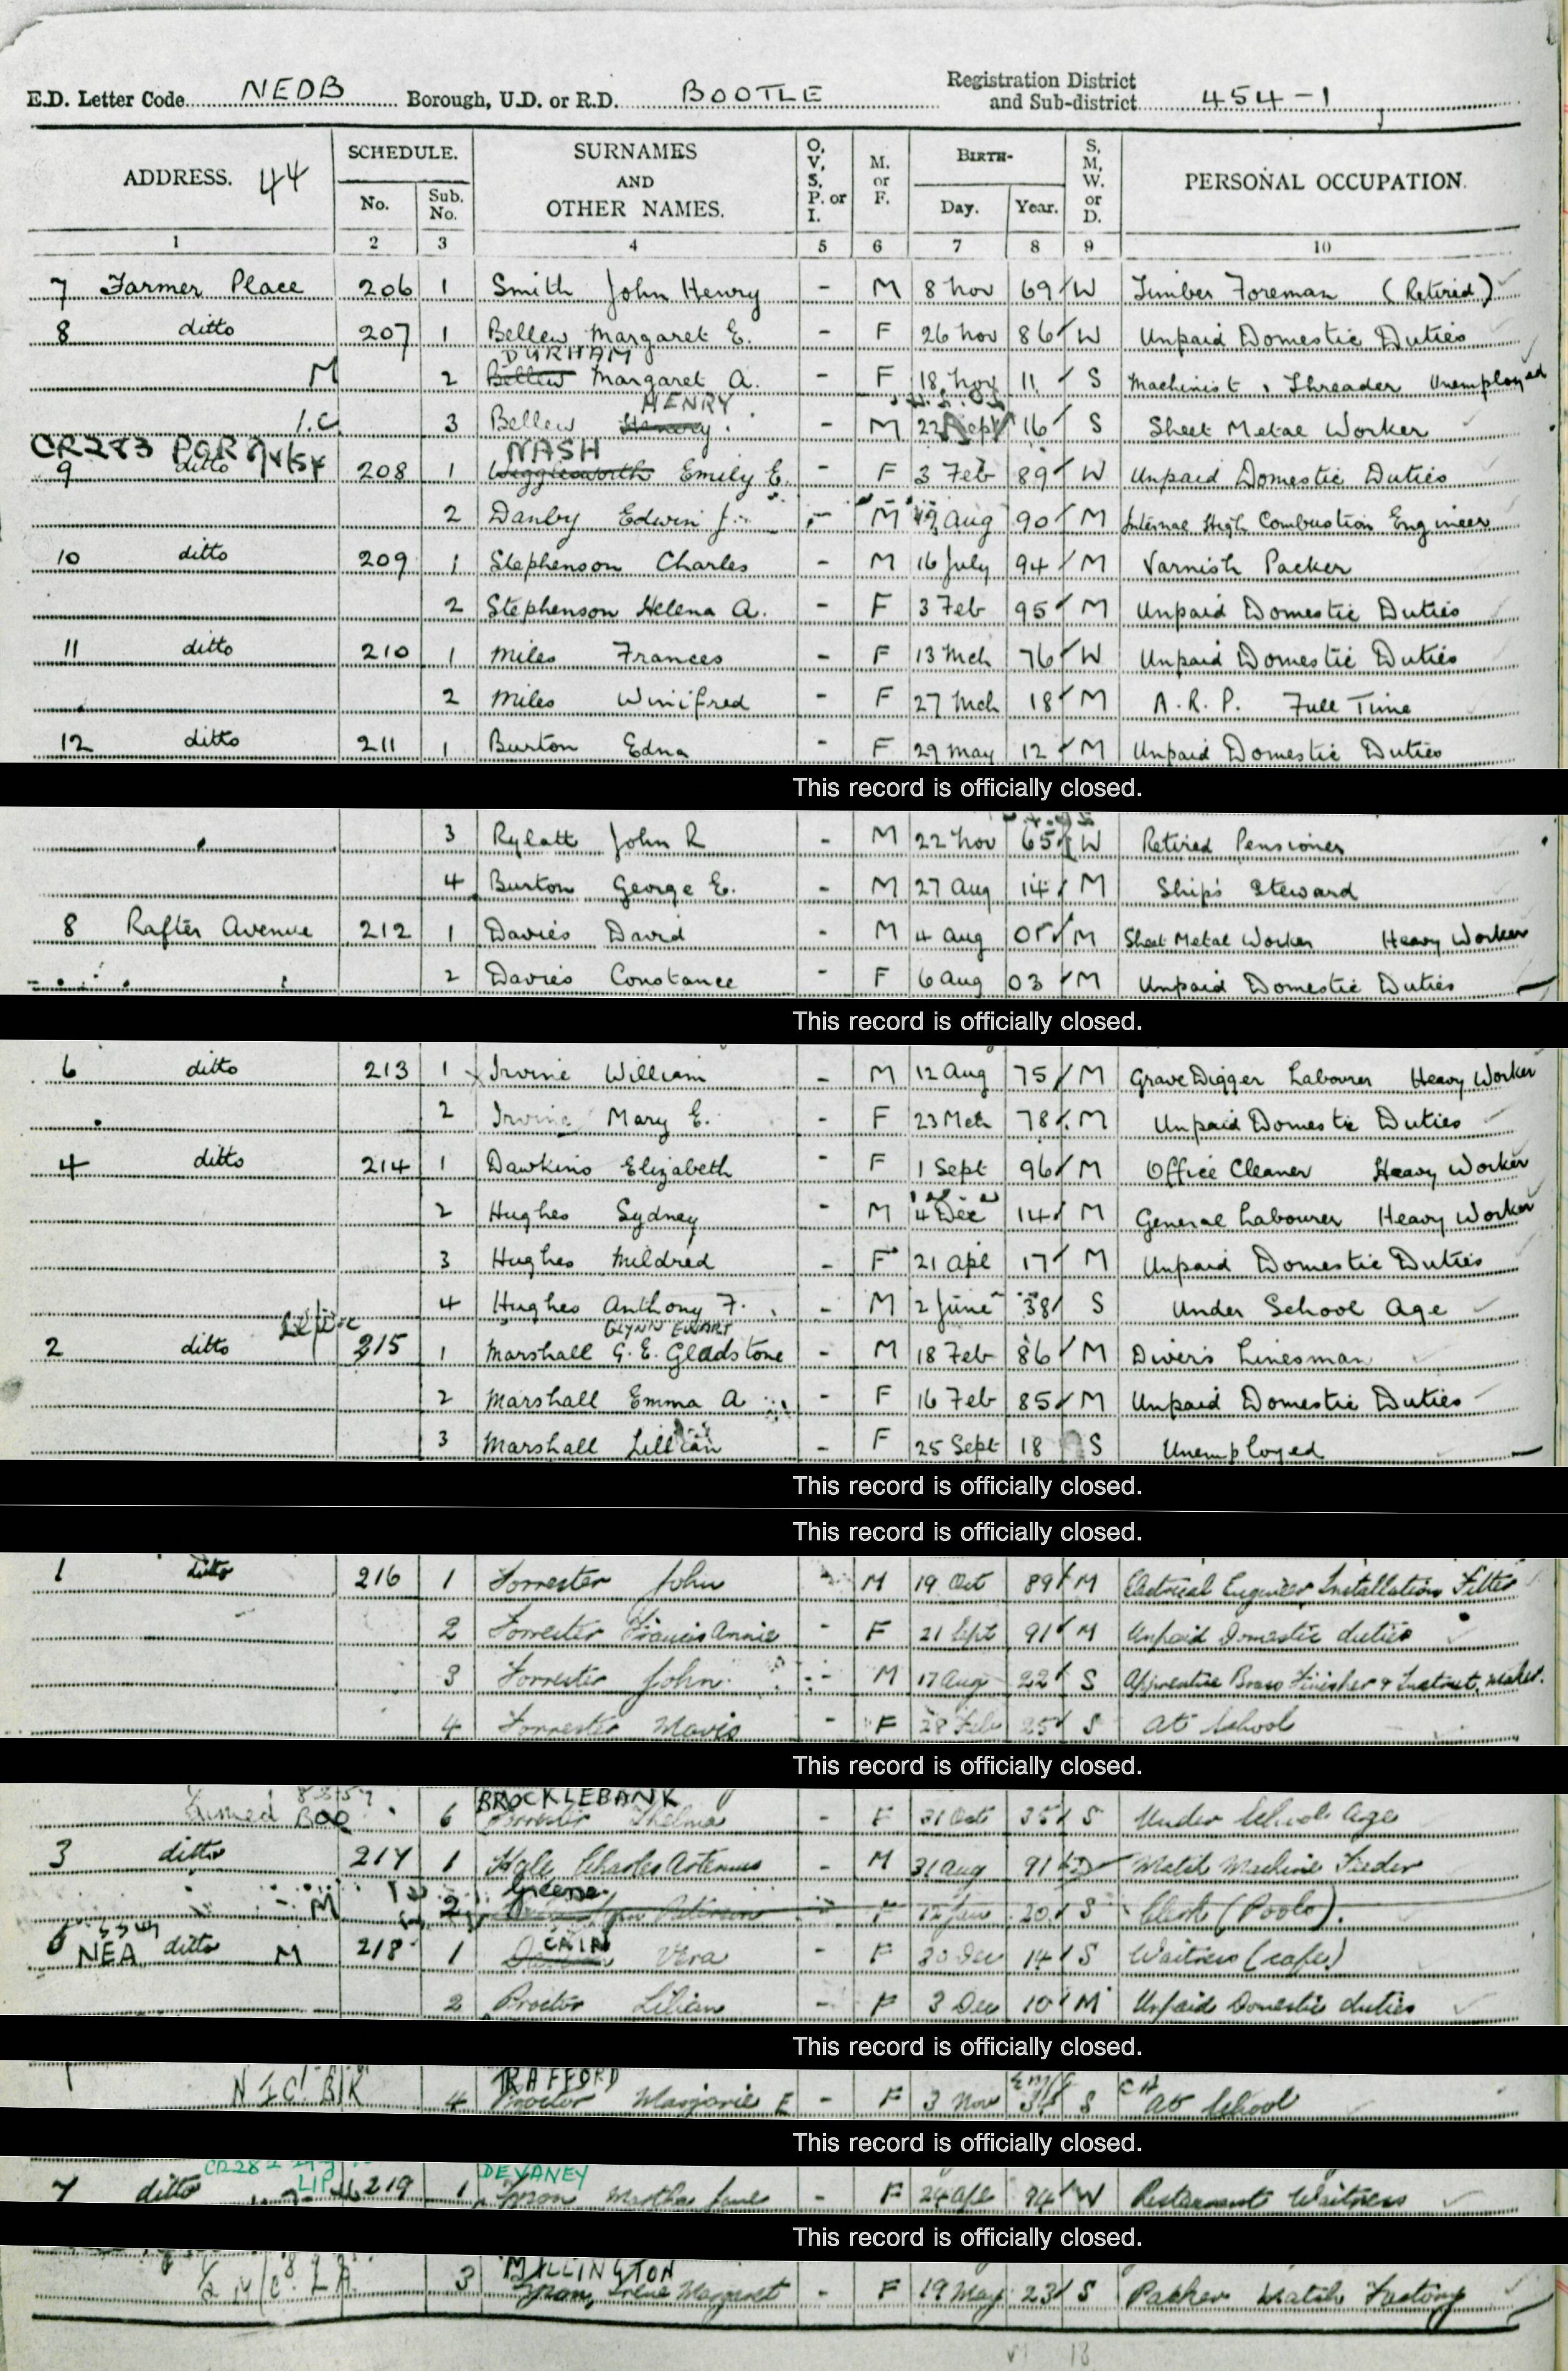 E.D. Letter Code NEDB Borough, U.D. or R.D. BOOTLE Registration District and Sub-district 454-1
ADDRESS. 44 SCHEDULE. No. Sub. No. SURNAMES AND OTHER NAMES. O, V, S, P. or I. M. or F. BIRTH- Day. Year. S, M, W. or D. PERSONAL OCCUPATION.
1 2 3 4 5 6 7 8 9 10
7 Farmer Place 206 1 Smith John Henry - M 8 Nov 69 W Timber Foreman (Retired)
8 ditto 207 1 Bellew Margaret E. - F 26 Nov 86 W Unpaid Domestic Duties
DURHAM
M 2 Bellew Margaret A. - F 18 Nov 11 S Machinist, Threader Unemployed
HENRY
3 Bellew - M 22 Sept 16 S Sheet Metal Worker
CR283 NASH
9 ditto 208 1 Wigglesworth Emily E. - F 3 Feb 89 W Unpaid Domestic Duties
2 Danby Edwin J. - M 19 Aug 90 M Internal High Combustion Engineer
10 ditto 209 1 Stephenson Charles - M 16 July 94 M Varnish Packer
2 Stephenson Helena A. - F 3 Feb 95 M Unpaid Domestic Duties
11 ditto 210 1 Miles Frances - F 13 Mch 76 W Unpaid Domestic Duties
2 Miles Winifred - F 27 Mch 18 M A.R.P. Full Time
12 ditto 211 1 Burton Edna - F 29 May 12 M Unpaid Domestic Duties
This record is officially closed.
3 Rylatt John R - M 22 Nov 65 W Retired Pensioner
4 Burton George E. - M 27 Aug 14 M Ship's Steward
8 Rafter Avenue 212 1 Davies David - M 4 Aug 05 M Sheet Metal Worker Heavy Worker
2 Davies Constance - F 6 Aug 03 M Unpaid Domestic Duties
This record is officially closed.
6 ditto 213 1 Irvine William - M 12 Aug 75 M Grave Digger Labourer Heavy Worker
2 Irvine Mary E. - F 23 Mch 78 M Unpaid Domestic Duties
4 ditto 214 1 Dawkins Elizabeth - F 1 Sept 96 M Office Cleaner Heavy Worker
2 Hughes Sydney - M 4 Dec 14 M General Labourer Heavy Worker
3 Hughes Mildred - F 21 Apl 17 M Unpaid Domestic Duties
4 Hughes Anthony F. - M 2 June 38 S Under School Age
GLYNN EWART
2 ditto 215 1 Marshall G. E. Gladstone - M 18 Feb 86 M Diver's Linesman
2 Marshall Emma A - F 16 Feb 85 M Unpaid Domestic Duties
3 Marshall Lillian - F 25 Sept 18 S Unemployed
This record is officially closed.
This record is officially closed.
1 ditto 216 1 Forrester John - M 19 Oct 89 M Electrical Engineer Installation Fitter
2 Forrester Francis Annie - F 21 Sept 91 M Unpaid Domestic duties
3 Forrester John - M 17 Aug 22 S Apprentice Brass Finisher & Instrut. maker.
4 Forrester Mavis - F 28 Feb 25 S At School
This record is officially closed.
BROCKLEBANK
6 Forrester Thelma - F 31 Oct 35 S Under School Age
3 ditto 217 1 Hale Charles Artemus - M 31 Aug 91 D Match Machine Feeder
Greene
M 2 F 12 Jan 20 S Clerk (Pools).
CAIN
NEA ditto M 218 1 Vera - F 30 Dec 14 S Waitress (cafe)
2 Proctor Lilian - F 3 Dec 10 M Unpaid Domestic duties
This record is officially closed.
TRAFFORD
4 Proctor Marjorie E - F 3 Nov S At School
This record is officially closed.
DEVANEY
7 ditto 219 1 Martha Jane - F 24 Apl 94 W Restaurant Waitress
This record is officially closed.
MILLINGTON
3 Irene Margaret - F 19 May 23 S Packer Match Factory